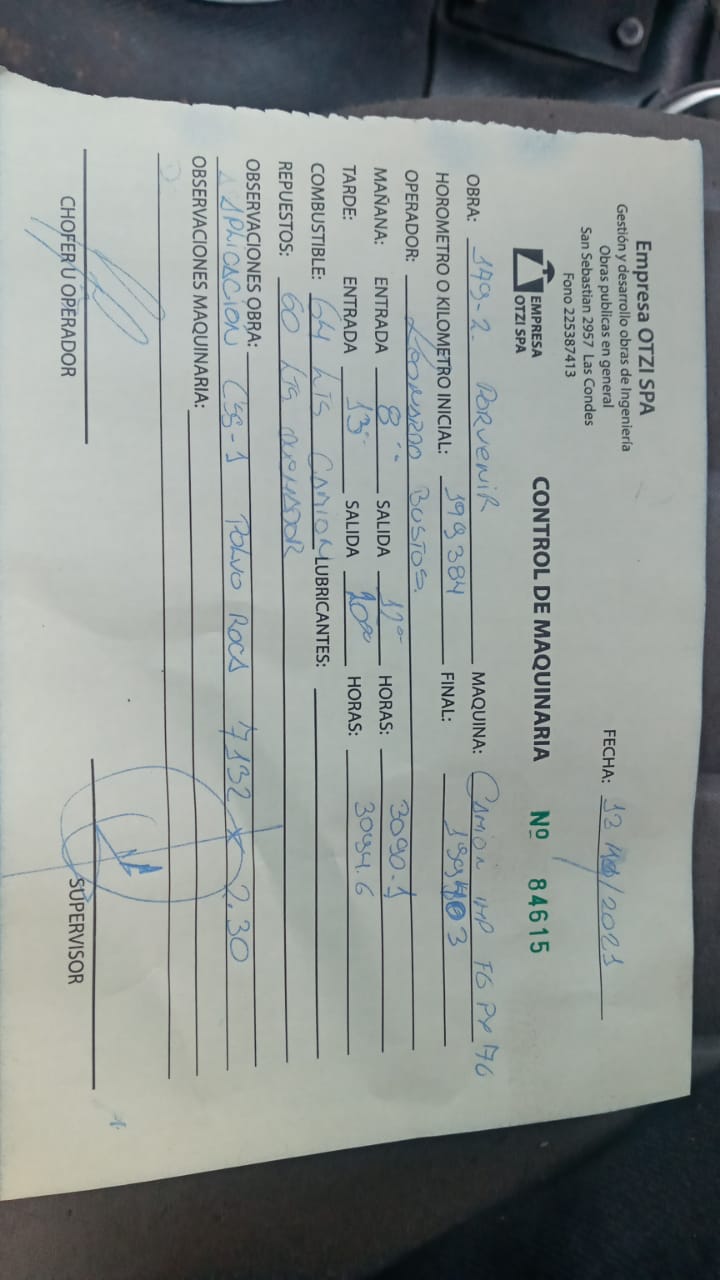 Empresa OTZI SPA
Gestión y desarrollo obras de Ingeniería
Obras publicas en general
San Sebastian 2957 Las Condes
Fono 225387413
EMPRESA
OTZI SPA
FECHA: /2021
CONTROL DE MAQUINARIA Nº 84615
OBRA: 179-2. PORVENIR MAQUINA: CAMION IMP FG PY 76
HOROMETRO O KILOMETRO INICIAL: 199384 FINAL:
OPERADOR: LEONARDO BUSTOS.
MAÑANA: ENTRADA 8 SALIDA 12 HORAS: 3090.1
TARDE: ENTRADA 13 SALIDA HORAS: 3094.6
COMBUSTIBLE: 64 LTS CAMION LUBRICANTES:
REPUESTOS: 60 LTS QUEMADOR
OBSERVACIONES OBRA:
APLICACION CSS-1 POLVO ROCA 7132 x 2.30
OBSERVACIONES MAQUINARIA:
CHOFER U OPERADOR SUPERVISOR